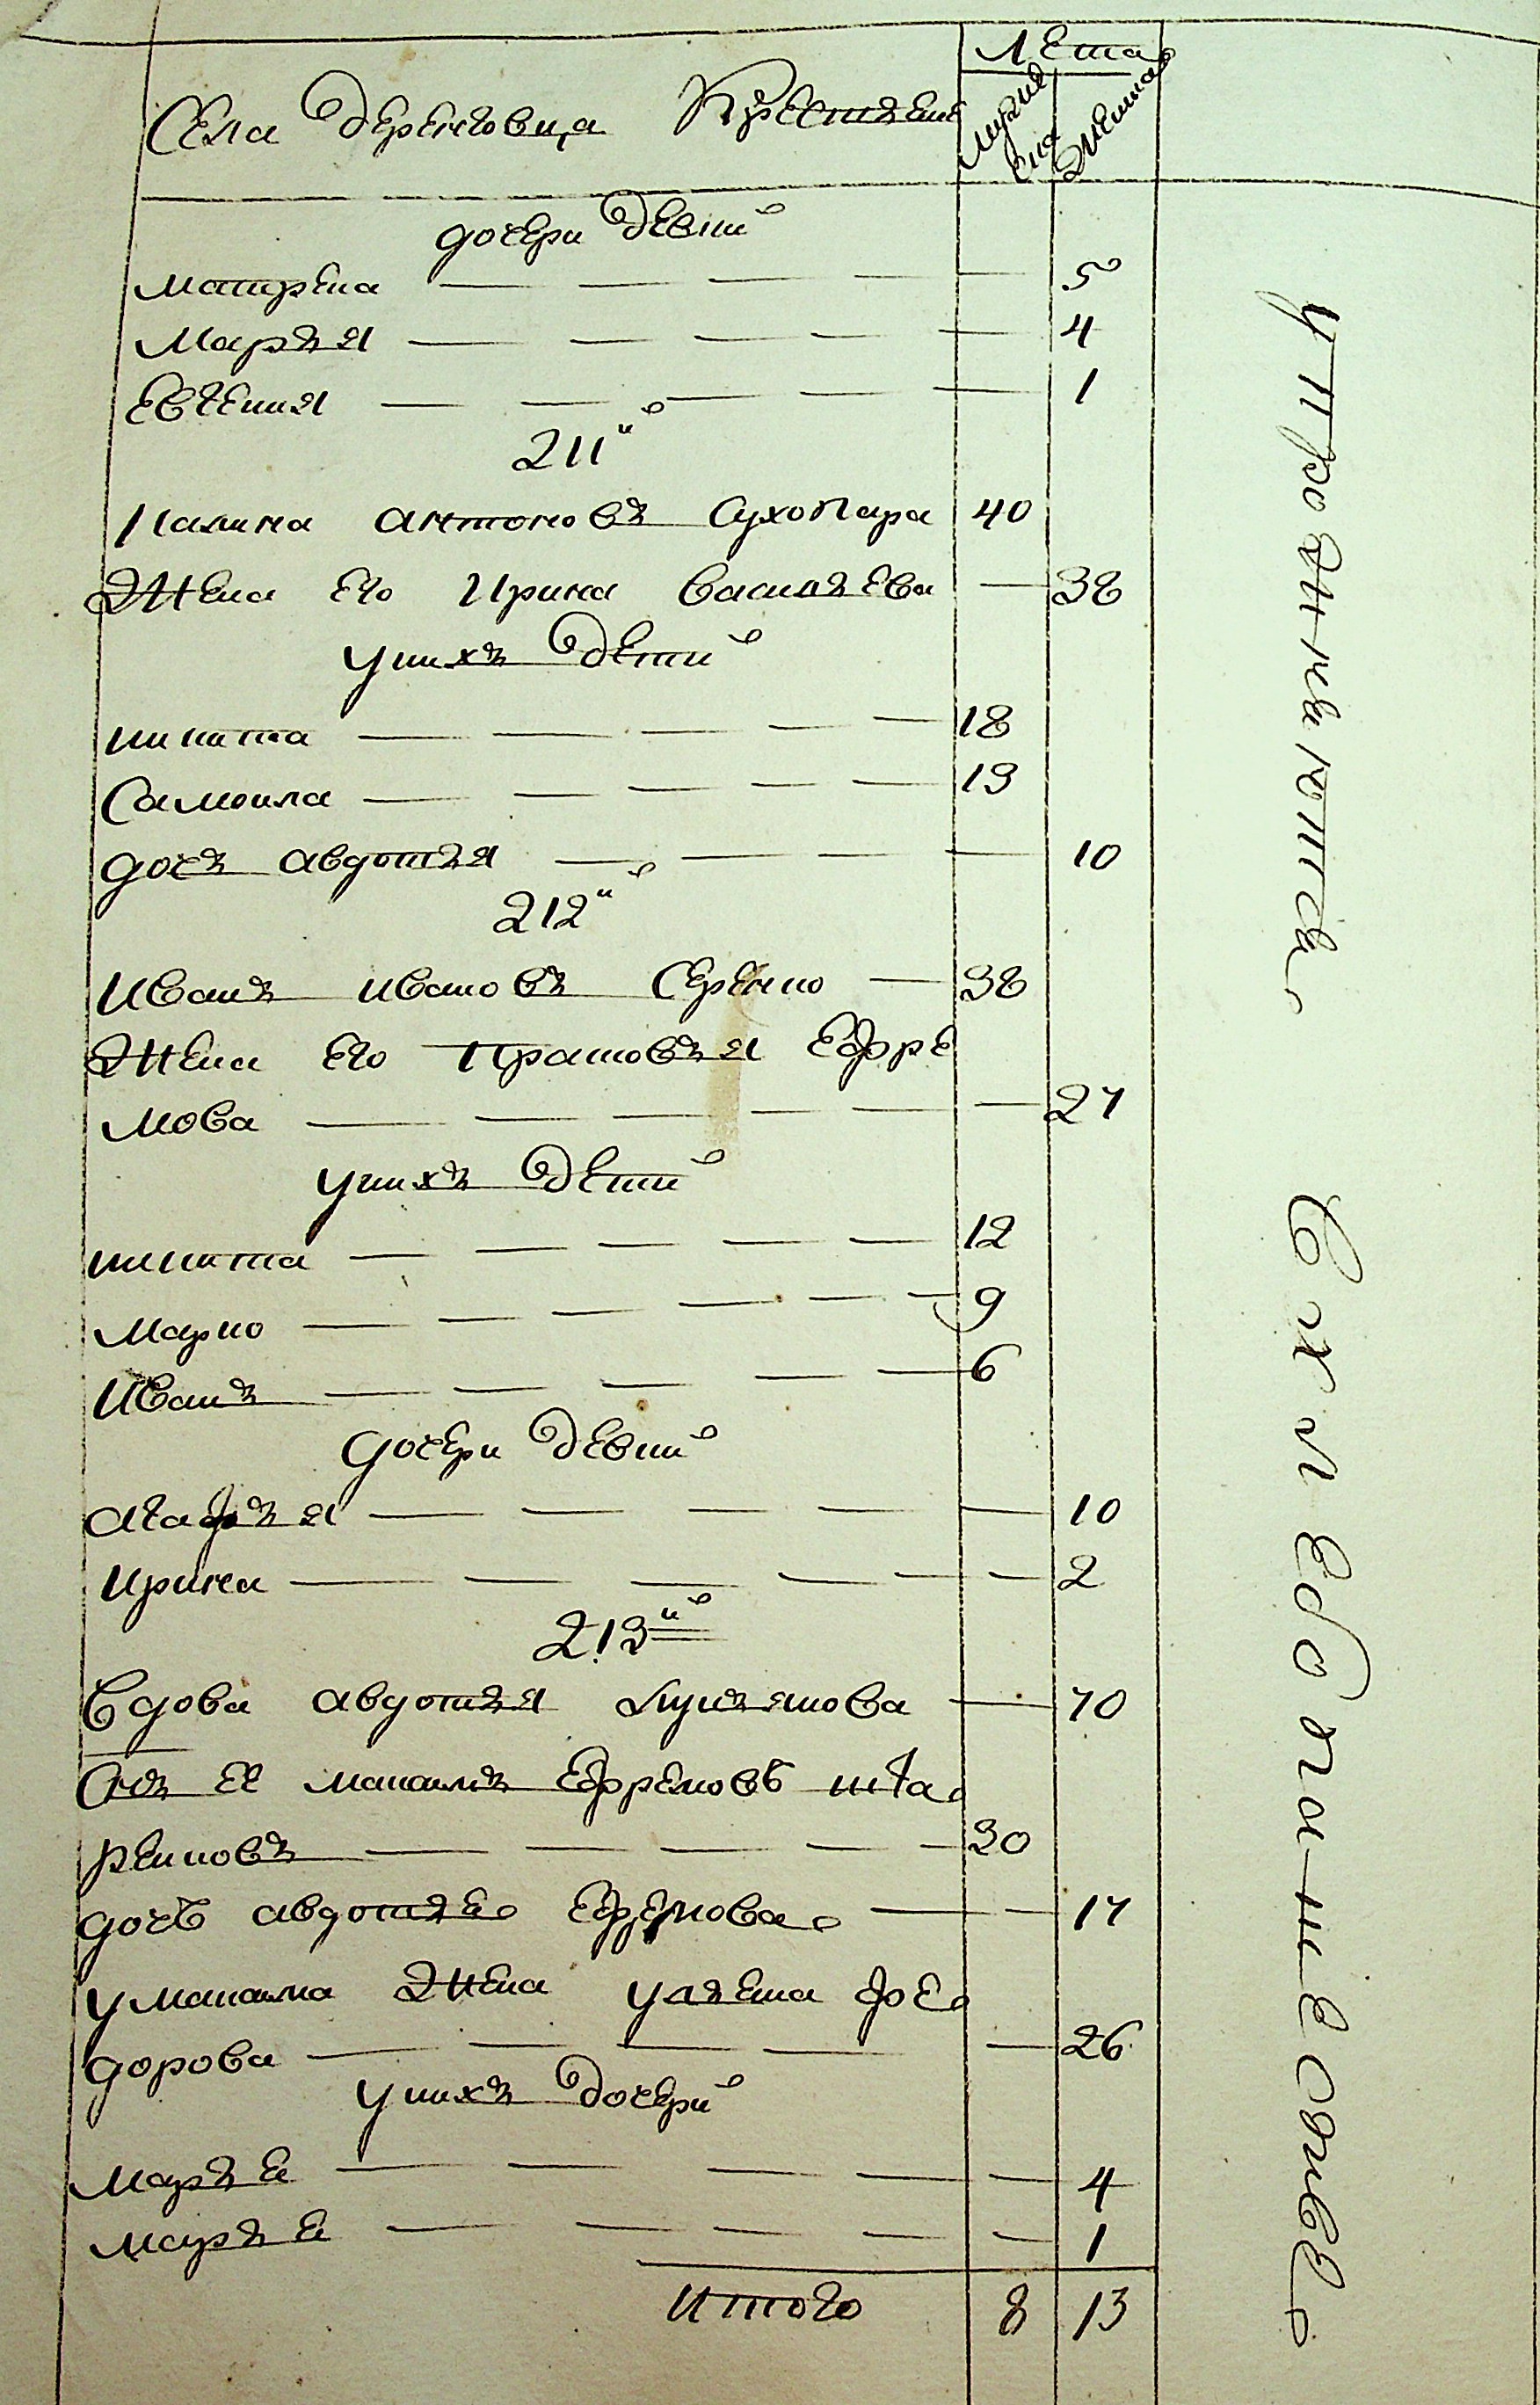 Лета
Села Деренговца Крестяне
Мужие
ска
Женска
дочери девки
Матрена — 5
Маръя — 4
Евгения — 1
211й
Калина антоновъ Сухопара 40
Жена его Ирина василъева — 38
у нихъ дети
никита — 18
Самоила — 13
дочъ авдотъя — 10
212й
Иванъ ивановъ Серенко — 38
Жена его Прасковъя Ефре
мова — 27
у нихъ дети
никита — 12
Марко — 9
Иванъ — 6
дочери девки
агафъя — 10
Ирина — 2
213й
Вдова авдотъя Лукъянова — 70
Снъ ее Манаилъ Ефремовъ
— 30
дочь авдотъя Ефремова — 17
у манаила Жена улъяна фео
дорова — 26
у нихъ дочери
Маръя — 4
Маръя — 1
Итого 8 13
упражняются
в хлебопашестве